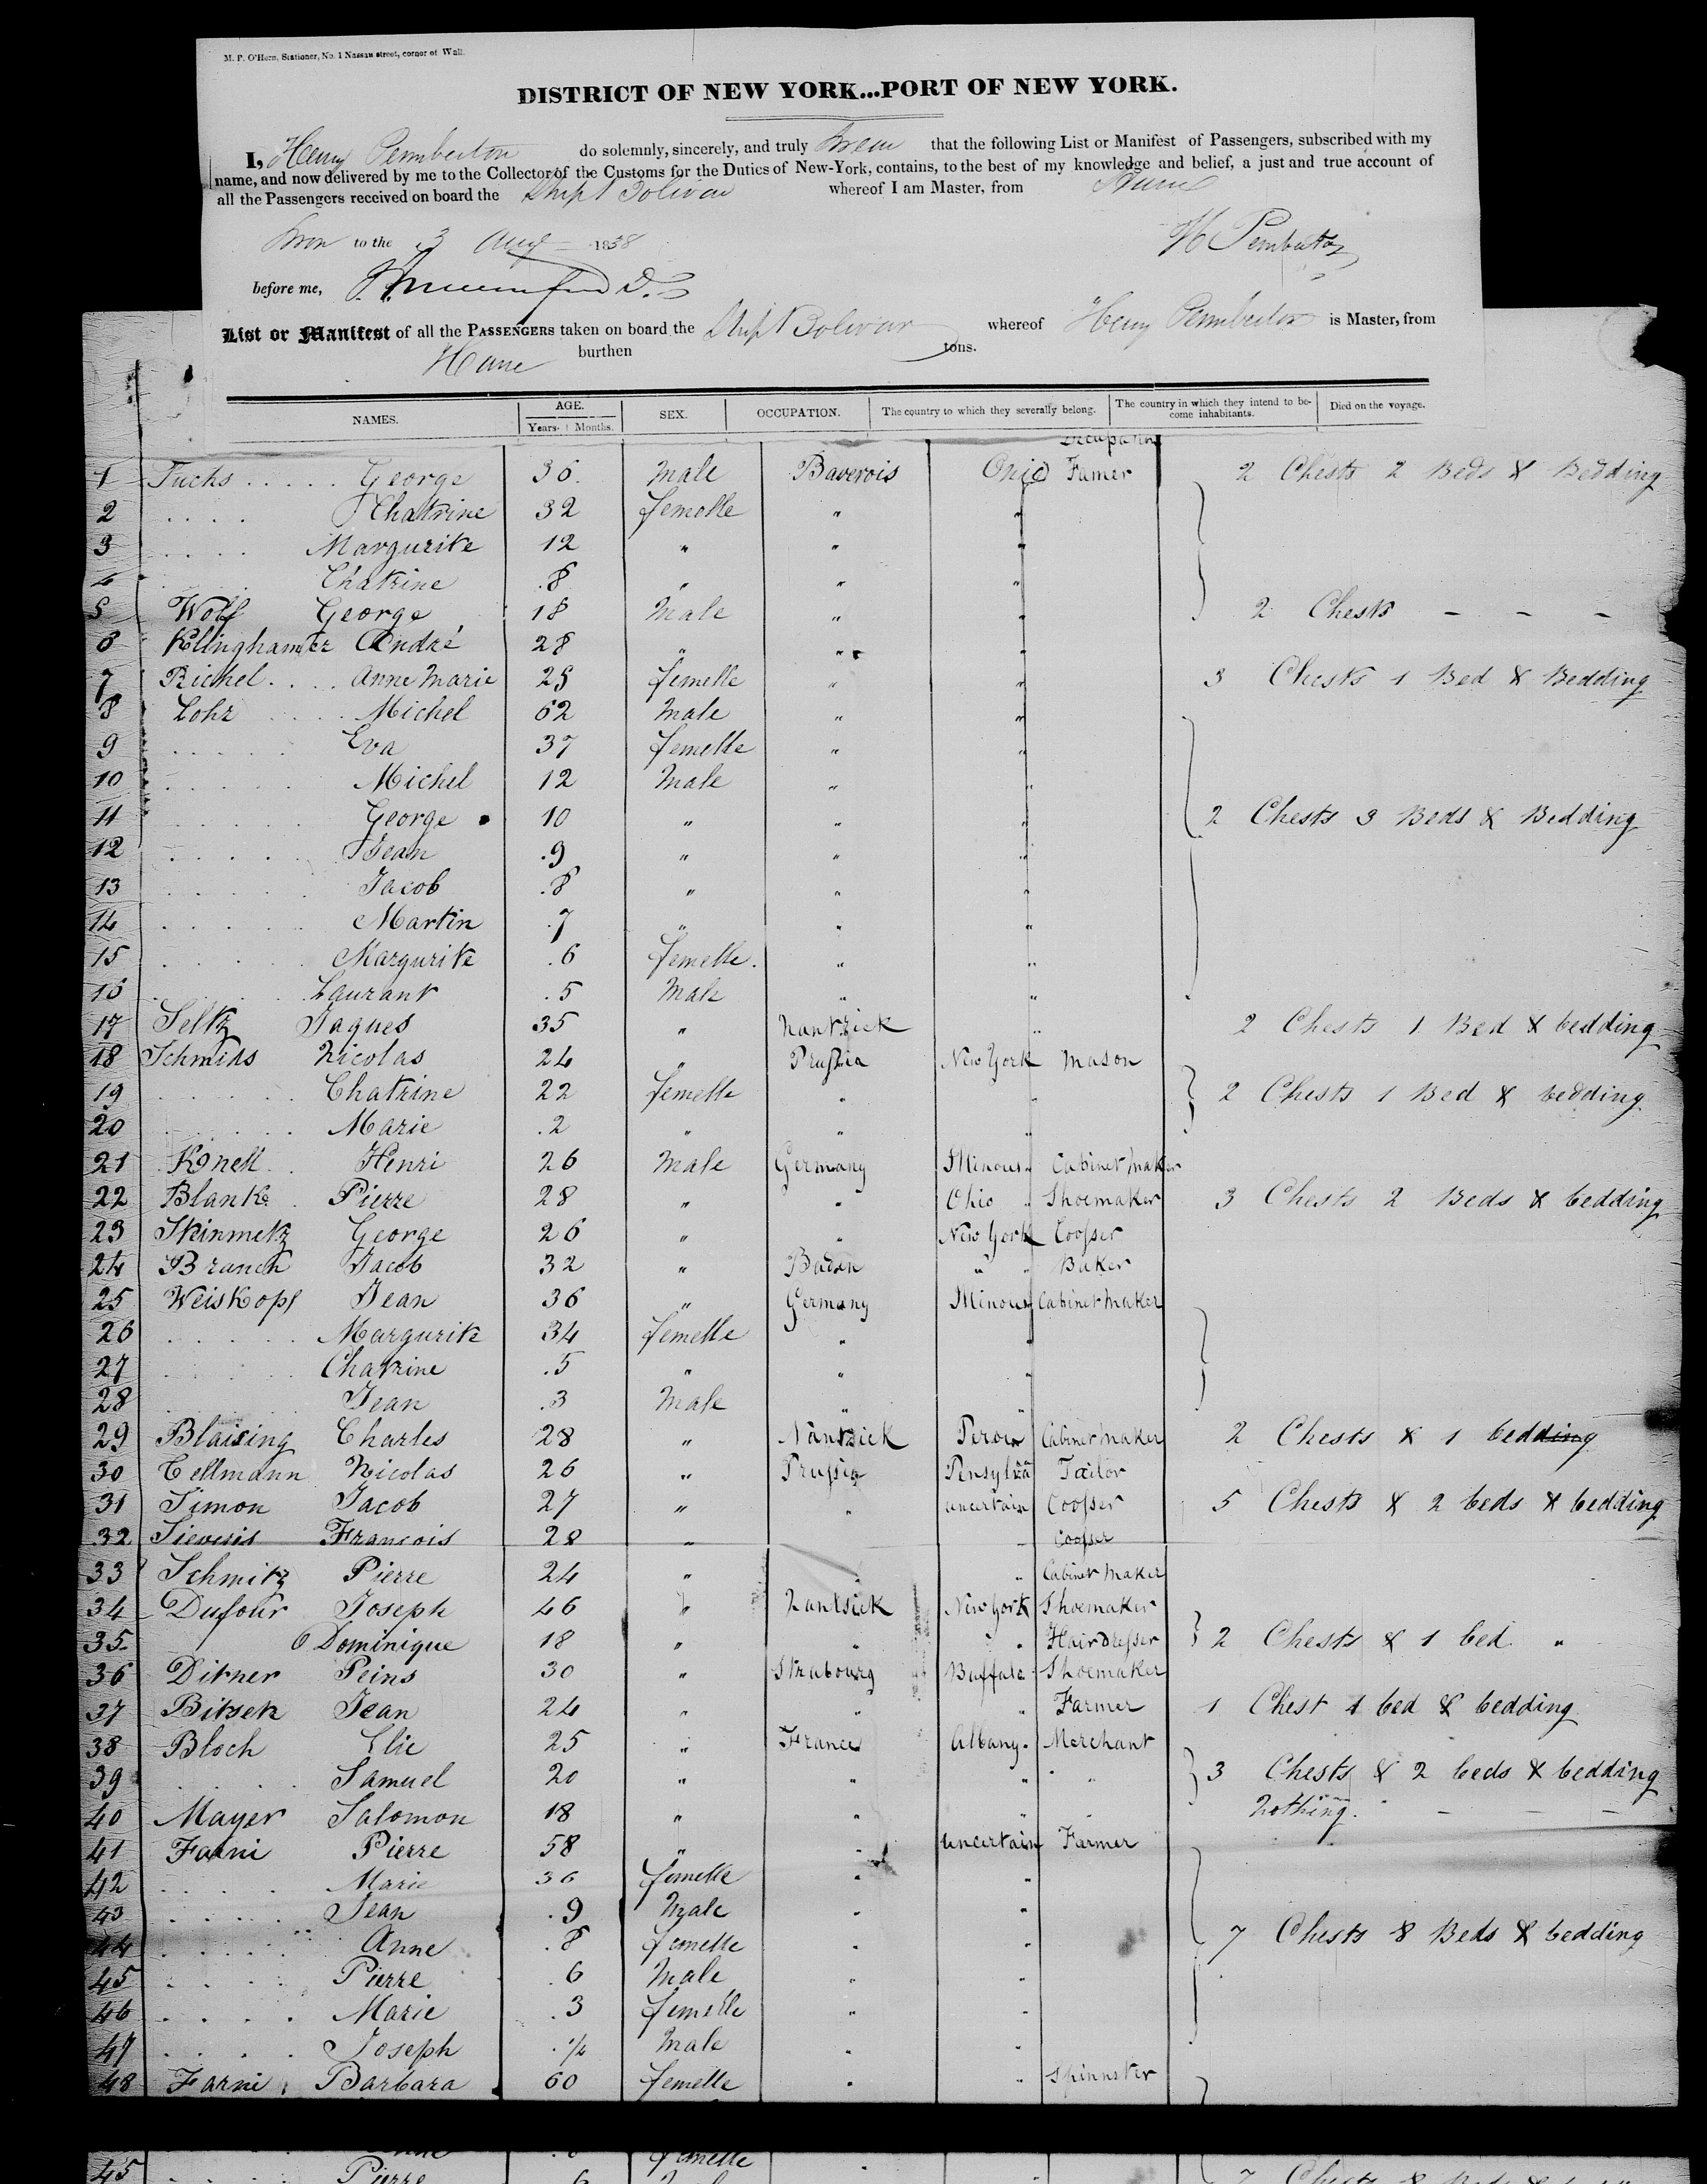 M. P. O'Hern, Stationer, No. 1 Nassau street, corner of Wall.
DISTRICT OF NEW YORK...PORT OF NEW YORK.
I, Henry Pemberton do solemnly, sincerely, and truly Swear that the following List or Manifest of Passengers, subscribed with my
name, and now delivered by me to the Collector of the Customs for the Duties of New-York, contains, to the best of my knowledge and belief, a just and true account of
all the Passengers received on board the Ship Bolivar whereof I am Master, from Havre
Sworn to the 3 Aug 1838 H Pemberton
before me,
List or Manifest of all the PASSENGERS taken on board the Ship Bolivar whereof Henry Pemberton is Master, from
Havre burthen tons.
NAMES. AGE. Years. Months. SEX. OCCUPATION. The country to which they severally belong. The country in which they intend to become inhabitants. Died on the voyage.
occupation
1 Fuchs ..... George 36. Male Baverois Ohio Famer 2 Chests 2 Beds & Bedding
2 .... Chatrine 32 femelle " "
3 .... Margurite 12 " " "
4 .... Chatrine .8 " " "
5 Wolf George 18 Male " " 2 Chests - - -
6 Kllinghamer André 28 " " "
7 Richel .... Anne Marie 25 femelle " " 3 Chests 1 Bed & Bedding
8 Lohr .... Michel 62 Male " "
9 ..... Eva 37 femelle " "
10 ..... Michel 12 Male " "
11 ..... George 10 " " " 2 Chests 3 Beds & Bedding
12 ..... Jean .9 " " "
13 ..... Jacob .8 " " "
14 ..... Martin .7 " " "
15 ..... Margurite .6 femelle. " "
16 ..... Laurant .5 Male " "
17 Seltz Jaques 35 " Nantzick " 2 Chests 1 Bed & bedding
18 Schmids Nicolas 24 " Prussia New York Mason
19 ..... Chatrine 22 femelle " " 2 Chests 1 Bed & bedding
20 ..... Marie .2 " " "
21 Konell Henri 26 Male Germany Illinous Cabinet Maker
22 Blank Pierre 28 " " Ohio Shoemaker 3 Chests 2 Beds & bedding
23 Steinmetz George 26 " " New York Cooper
24 Branch Jacob 32 " Baden " Baker
25 Weiskopf Jean 36 " Germany Illinous Cabinet Maker
26 ..... Margurite 34 femelle " "
27 ..... Chatrine .5 " " "
28 ..... Jean .3 Male " "
29 Blaising Charles 28 " Nantzick Cabinet Maker 2 Chests & 1 bedding
30 Cellmann Nicolas 26 " Prussia Pensylna Tailor
31 Simon Jacob 27 " " uncertain Cooper 5 Chests & 2 beds & bedding
32 Sieveris François 28 " " Cooper
33 Schmitz Pierre 24 " " " Cabinet Maker
34 Dufour Joseph 46 " Nantsick New York Shoemaker
35 Dominique 18 " " " Hairdresser 2 Chests & 1 bed "
36 Ditner Peins 30 " Strabourg Buffalo Shoemaker
37 Bitsek Jean 24 " " " Farmer 1 Chest 1 bed & bedding
38 Bloch Elie 25 " France Albany Merchant
39 .... Samuel 20 " " " " 3 Chests & 2 beds & bedding
40 Mayer Salomon 18 " " " " Nothing. - - -
41 Farni Pierre 58 " " uncertain Farmer
42 .... Marie 36 femelle " "
43 .... Jean .9 Male " "
44 .... Anne .8 femelle " " 7 Chests 8 Beds & bedding
45 .... Pierre .6 Male " "
46 .... Marie .3 femelle " "
47 .... Joseph Male " "
48 Farni Barbara 60 femelle " " Spinnster
femelle
45 Pierre 6 7 Chests 8 Beds &